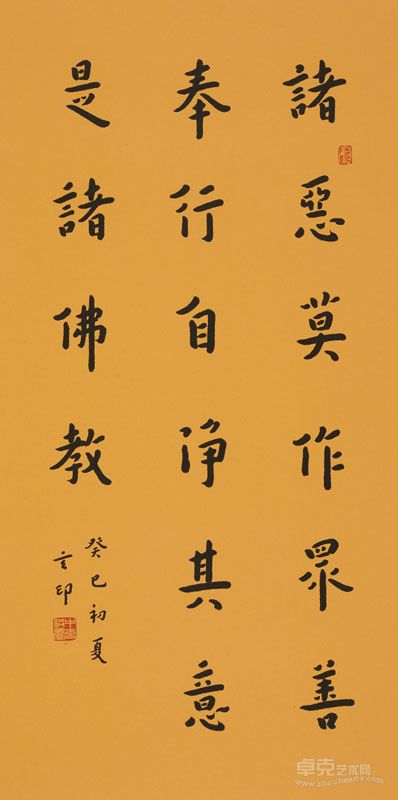 諸惡莫作眾善
奉行自淨其意
是諸佛教
癸巳初夏
言印
卓克艺术网
www.zhuokearts.com